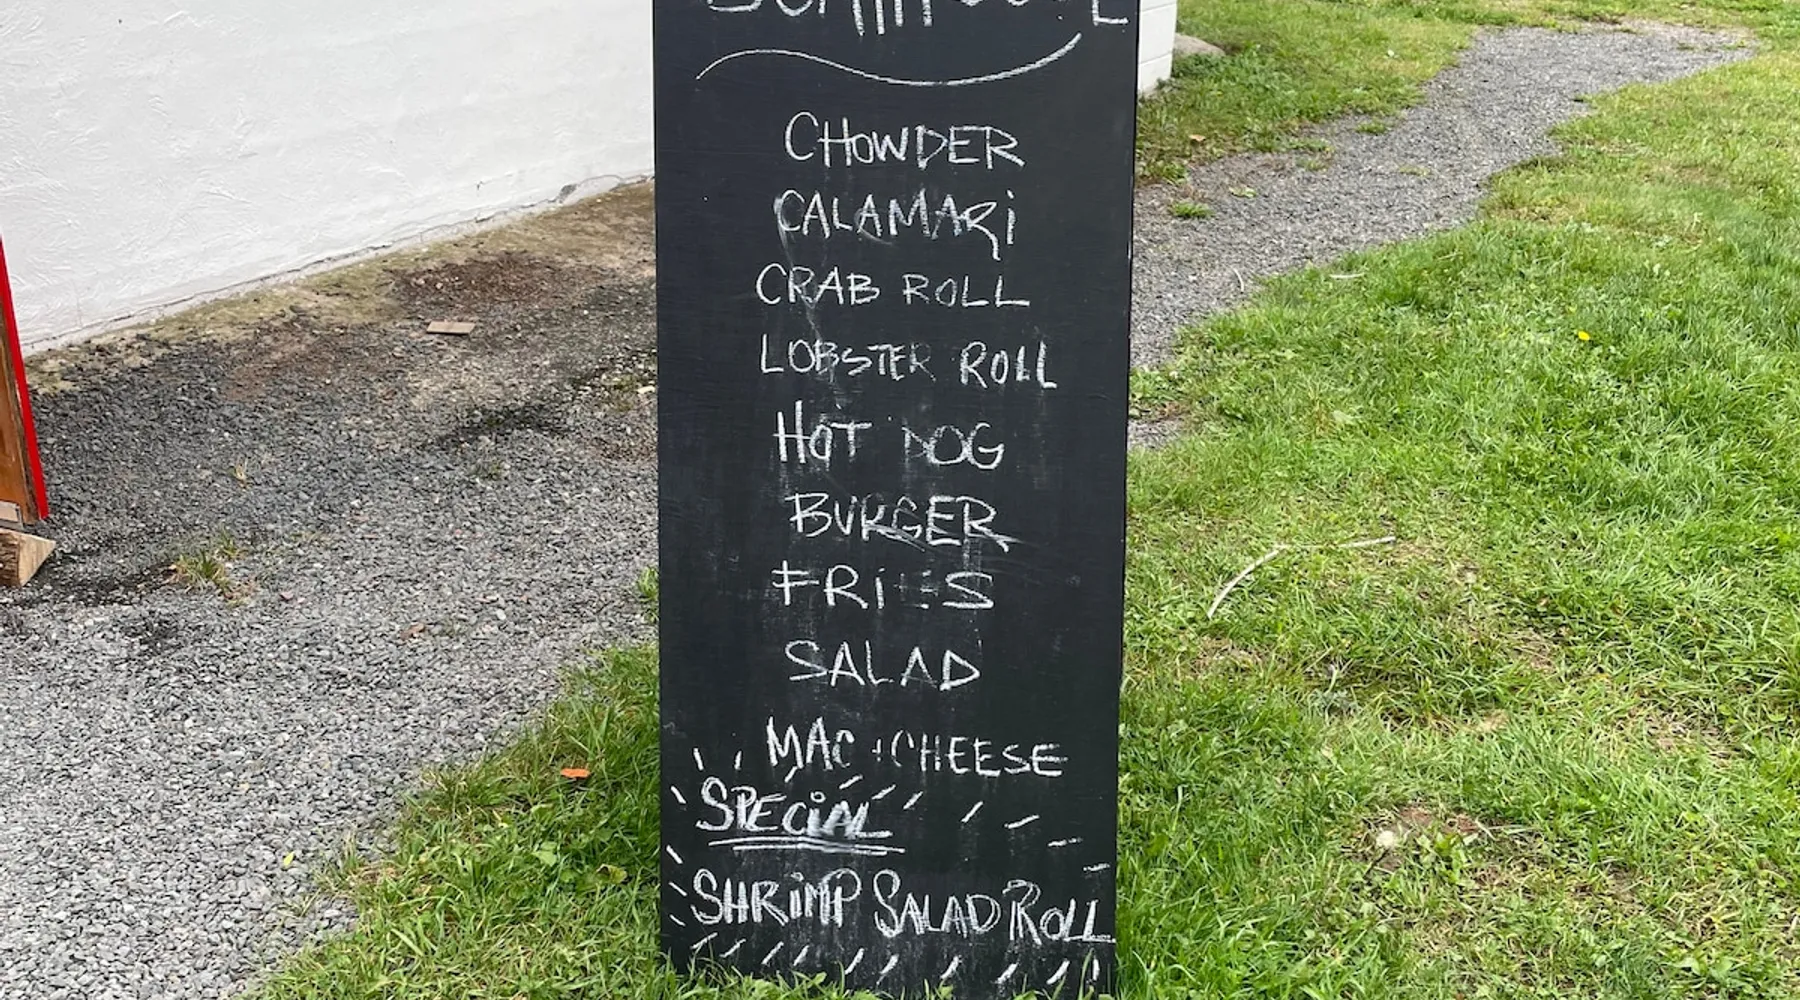 CHOWDER
CALAMARi
CRAB ROLL
LOBSTER ROLL
HOT DOG
BURGER
FRiES
SALAD
MAC + CHEESE
SPECiAL
SHRiMP SALAD ROLL